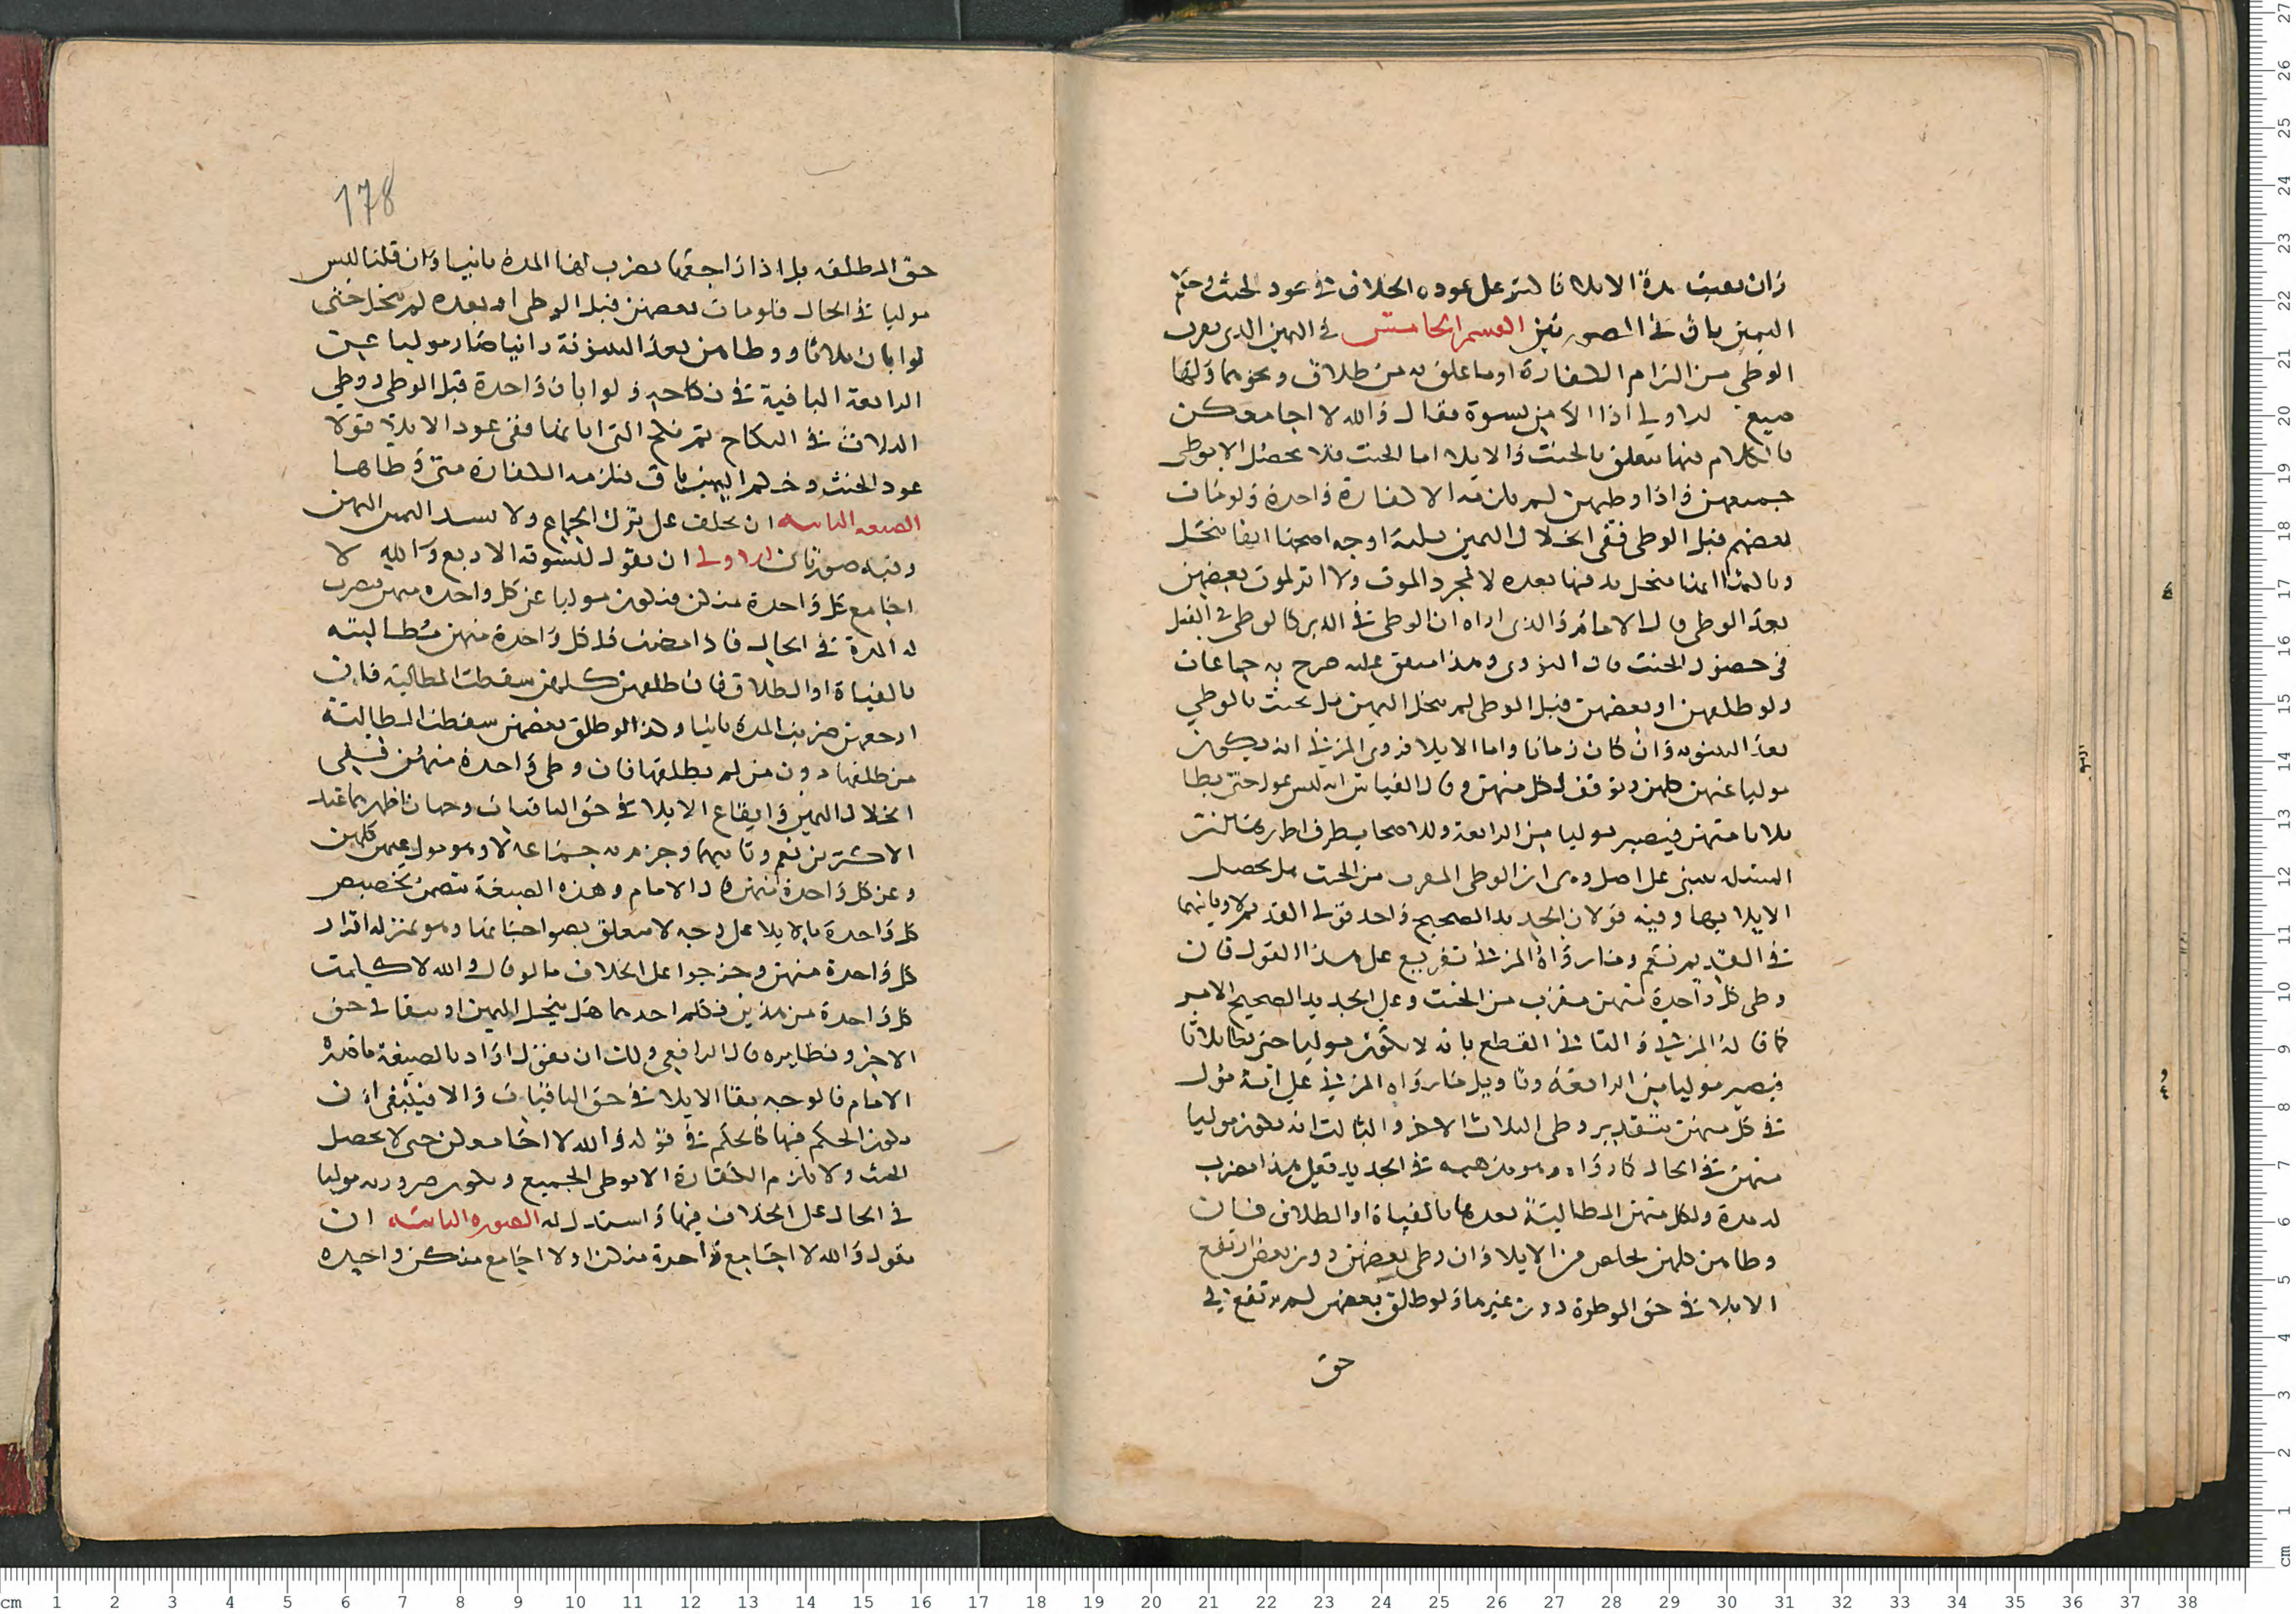 وان بقيت مدة الايلا فا لتر على عوده الخلاف في عود الحنث وحكم
اليمين باق في الصورتين القسم الخامس في اليمين الذي يقرب
الوطي من التزام الكفارة او ما علق به من طلاق ونحوهما ولها
صيغ الاولى اذا الا من نسوة فقال والله لا اجامعكن
فالكلام فيها يتعلق بالحنث والايلا اما الحنث فلا يحصل الا بوطي
جميعهن فاذا وطيهن لم يلزمه الا كفارة واحدة ولو مات
بعضهم قبل الوطي ففي انحلال اليمين ثلثة اوجه اصحها انها تنحل
وثالثها انها تنحل به فيها بعده لا بمجرد الموت ولا اثر لموت بعضهن
بعد الوطي قال الامام والذي اراه ان الوطي في الدبر كالوطي في القبل
في حصول الحنث قال النووي وهذا متفق عليه صرح به جماعات
ولو طلقهن او بعضهن قبل الوطي لم تنحل اليمين بل يحنث بالوطي
بعد البينونه وان كان زمانا واما الايلا فروى المزني انه يكون
موليا عنهن كلهن ويوقف لكل منهن وقال القياس انه ليس بمول حتى يطا
ثلاثا منهن فيصير موليا من الرابعة وللاصحاب طرق اظهرها ان
المسئله تبنى على اصل وهو ان الوطي المقرب من الحنث هل يحصل
الايلا بها وفيه قولان الجديد الصحيح واحد قولي القديم لا وثانيهما
في القديم نعم وما رواه المزني تفريع على هذا القول فان
وطي كل واحدة منهن مقرب من الحنث وعلى الجديد الصحيح الامر
كما قاله المزني والثاني القطع بانه لا يكون موليا حتى يطا ثلاثا
فيصير موليا من الرابعة وتاويل ما رواه المزني على انه مول
في كل منهن بتقدير وطي الثلاث الاخر والثالث انه يكون موليا
منهن في الحال كما رواه وهو مذهبه في الجديد فعلى هذا تضرب
له مدة ولكل منهن المطالبة بعدها بالفياة او الطلاق فان
وطا من كلهن تخلص من الايلا وان وطي بعضهن دون بعض ارتفع
الايلا في حق الموطوة دون غيرها ولو طلق بعضهن لم يرتفع في
حق
178
حق المطلقه بل اذا راجعها تضرب لها المدة ثانيا وان قلنا ليس
موليا في الحال فلو مات بعضهن قبل الوطي او بعده لم تنحل حتى
لو ابان ثلاثا ووطا من بعد البينونة زانيا صار موليا عن
الرابعة الباقية في نكاحه ولو ابان واحدة قبل الوطي ووطي
الثلاث في النكاح ثم نكح التي ابانها ففي عود الايلا قولا
عود الحنث وحكم اليمين باق فتلزمه الكفارة متى وطاها
الصيغه الثانيه ان يحلف على ترك الجماع ولا يسند اليمين اليهن
وفيه صورتان الاولى ان يقول لنسوته الاربع والله لا
اجامع كل واحدة منكن فيكون موليا عن كل واحده منهن تضرب
له المدة في الحال فاذا مضت فلكل واحدة منهن مطالبته
بالفياة او الطلاق فان طلقهن كلهن سقطت المطالبة فان
ارجعهن ضربت المدة ثانيا وكذا لو طلق بعضهن سقطت المطالبة
من طلقها دون من لم يطلقها فان وطي واحدة منهن ففي
انحلال اليمين وايقاع الايلا في حق الباقيات وجهان اظهرهما عند
الاكثرين نعم وثانيهما وجزم به جماعة لا وهو مول عنهن كلهن
وعن كل واحدة منهن قال الامام وهذه الصيغة تتضمن تخصيص
كل واحدة بالايلا على وجه لا يتعلق بصواحباتها وهو بمنزلة افراد
كل واحدة منهن وخرجوا على الخلاف ما لو قال والله لا كلمت
كل واحدة من هذين فكلم احدهما هل ينحل اليمين او يبقى في حق
الاخر ونظايره قال الرافعي ولك ان تقول اراد بالصيغة ما قدره
الامام فالوجه بقا الايلا في حق الباقيات والا فينبغي ان
يكون الحكم فيها كالحكم في قوله والله لا اجامعكن حتى لا يحصل
الحنث ولا يلزم الكفارة الا بوطي الجميع ويكون صيرورته موليا
في الحال على الخلاف فيها واستدل له الصوره الثانيه ان
يقول والله لا اجامع واحدة منكن او لا اجامع منكن واحده